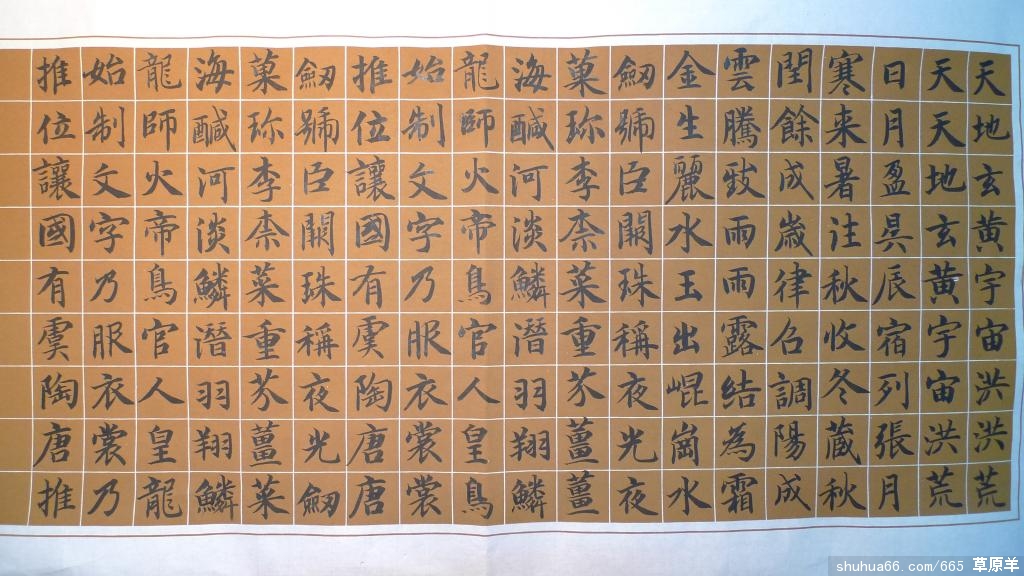 天地玄黄宇宙洪洪荒
天天地玄黄宇宙洪荒
日月盈昃辰宿列張月
寒来暑注秋收冬蔵秋
閏餘成歲律召調陽成
雲騰致雨雨露結為霜
金生麗水玉出崐崗水
劒號臣闕珠稱夜光夜
菓珎李柰菜重芥薑薑
海鹹河淡鱗潛羽翔鱗
龍師火帝鳥官人皇鳥
始制文字乃服衣裳裳
推位讓國有虞陶唐唐
劒號臣闕珠稱夜光劒
菓珎李柰菜重芥薑菜
海鹹河淡鱗潛羽翔鱗
龍師火帝鳥官人皇龍
始制文字乃服衣裳乃
推位讓國有虞陶唐推
shuhua66.com/665 草原羊